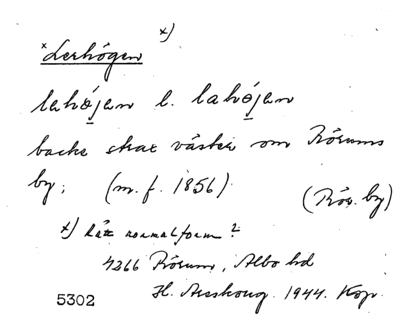 x)
× Lerhögen
lahǿjen l. lahǿjen
backe strax väster om Rörums
by; (m.f. 1856)
(Rör. by)
x) Rätt normalform?
4266 Rörum, Albo hd
5302 H. Areskoug. 1944. Kop.